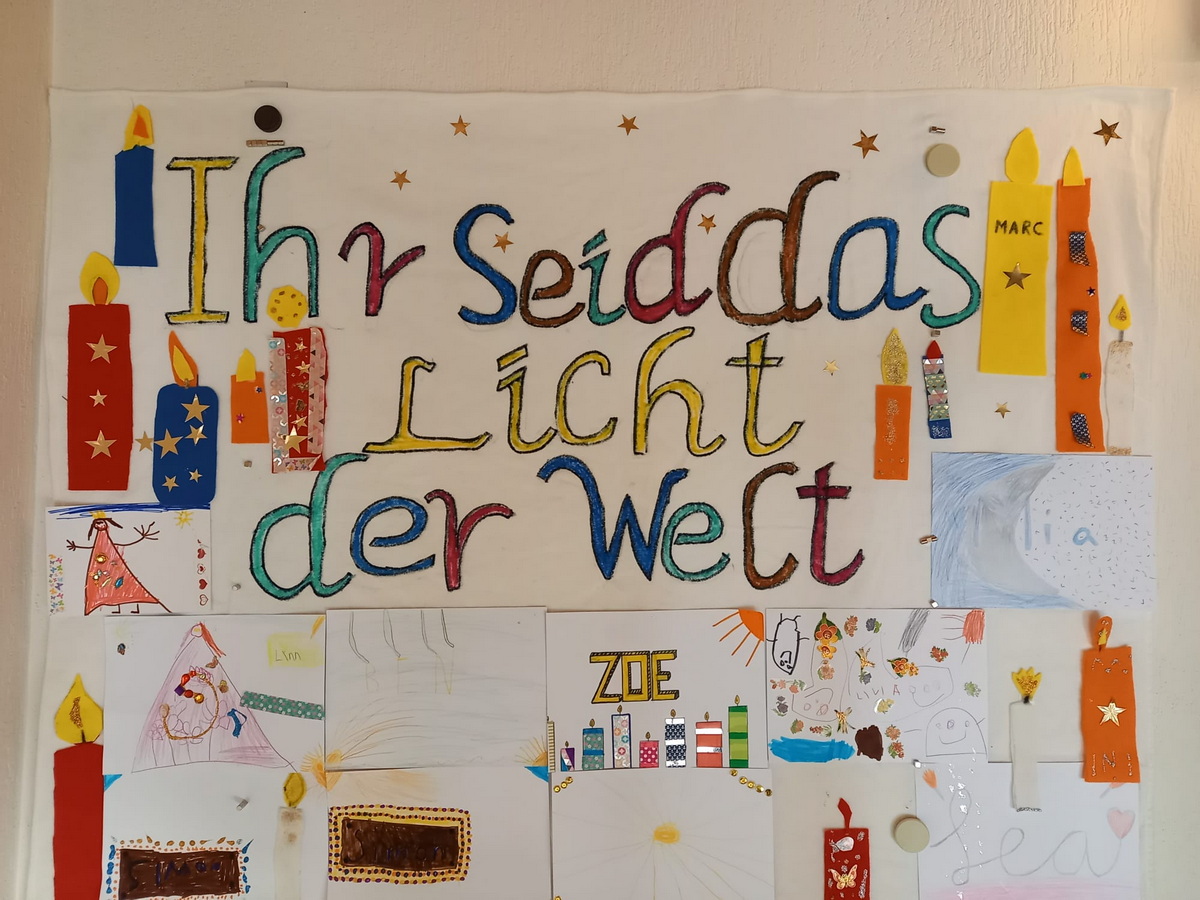 Ihr seid das
Licht
der Welt
MARC
lia
Linn
ZOE
LIVIA
Lea